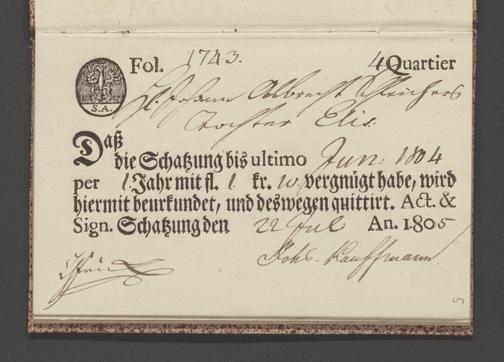 Fol. 1743. 4 Quartier
S.A.
Johann Albrecht Schreihers
Tochter Elis.
Daß
die Schatzung bis ultimo Jun: 1804
per 1. Jahr mit fl. 1. kr. 10. vergnügt habe, wird
hiermit beurkundet, und deswegen quittirt. Act. &
Sign. Schatzung den 22 Jul An. 1805
Johs. Kauffmann
5